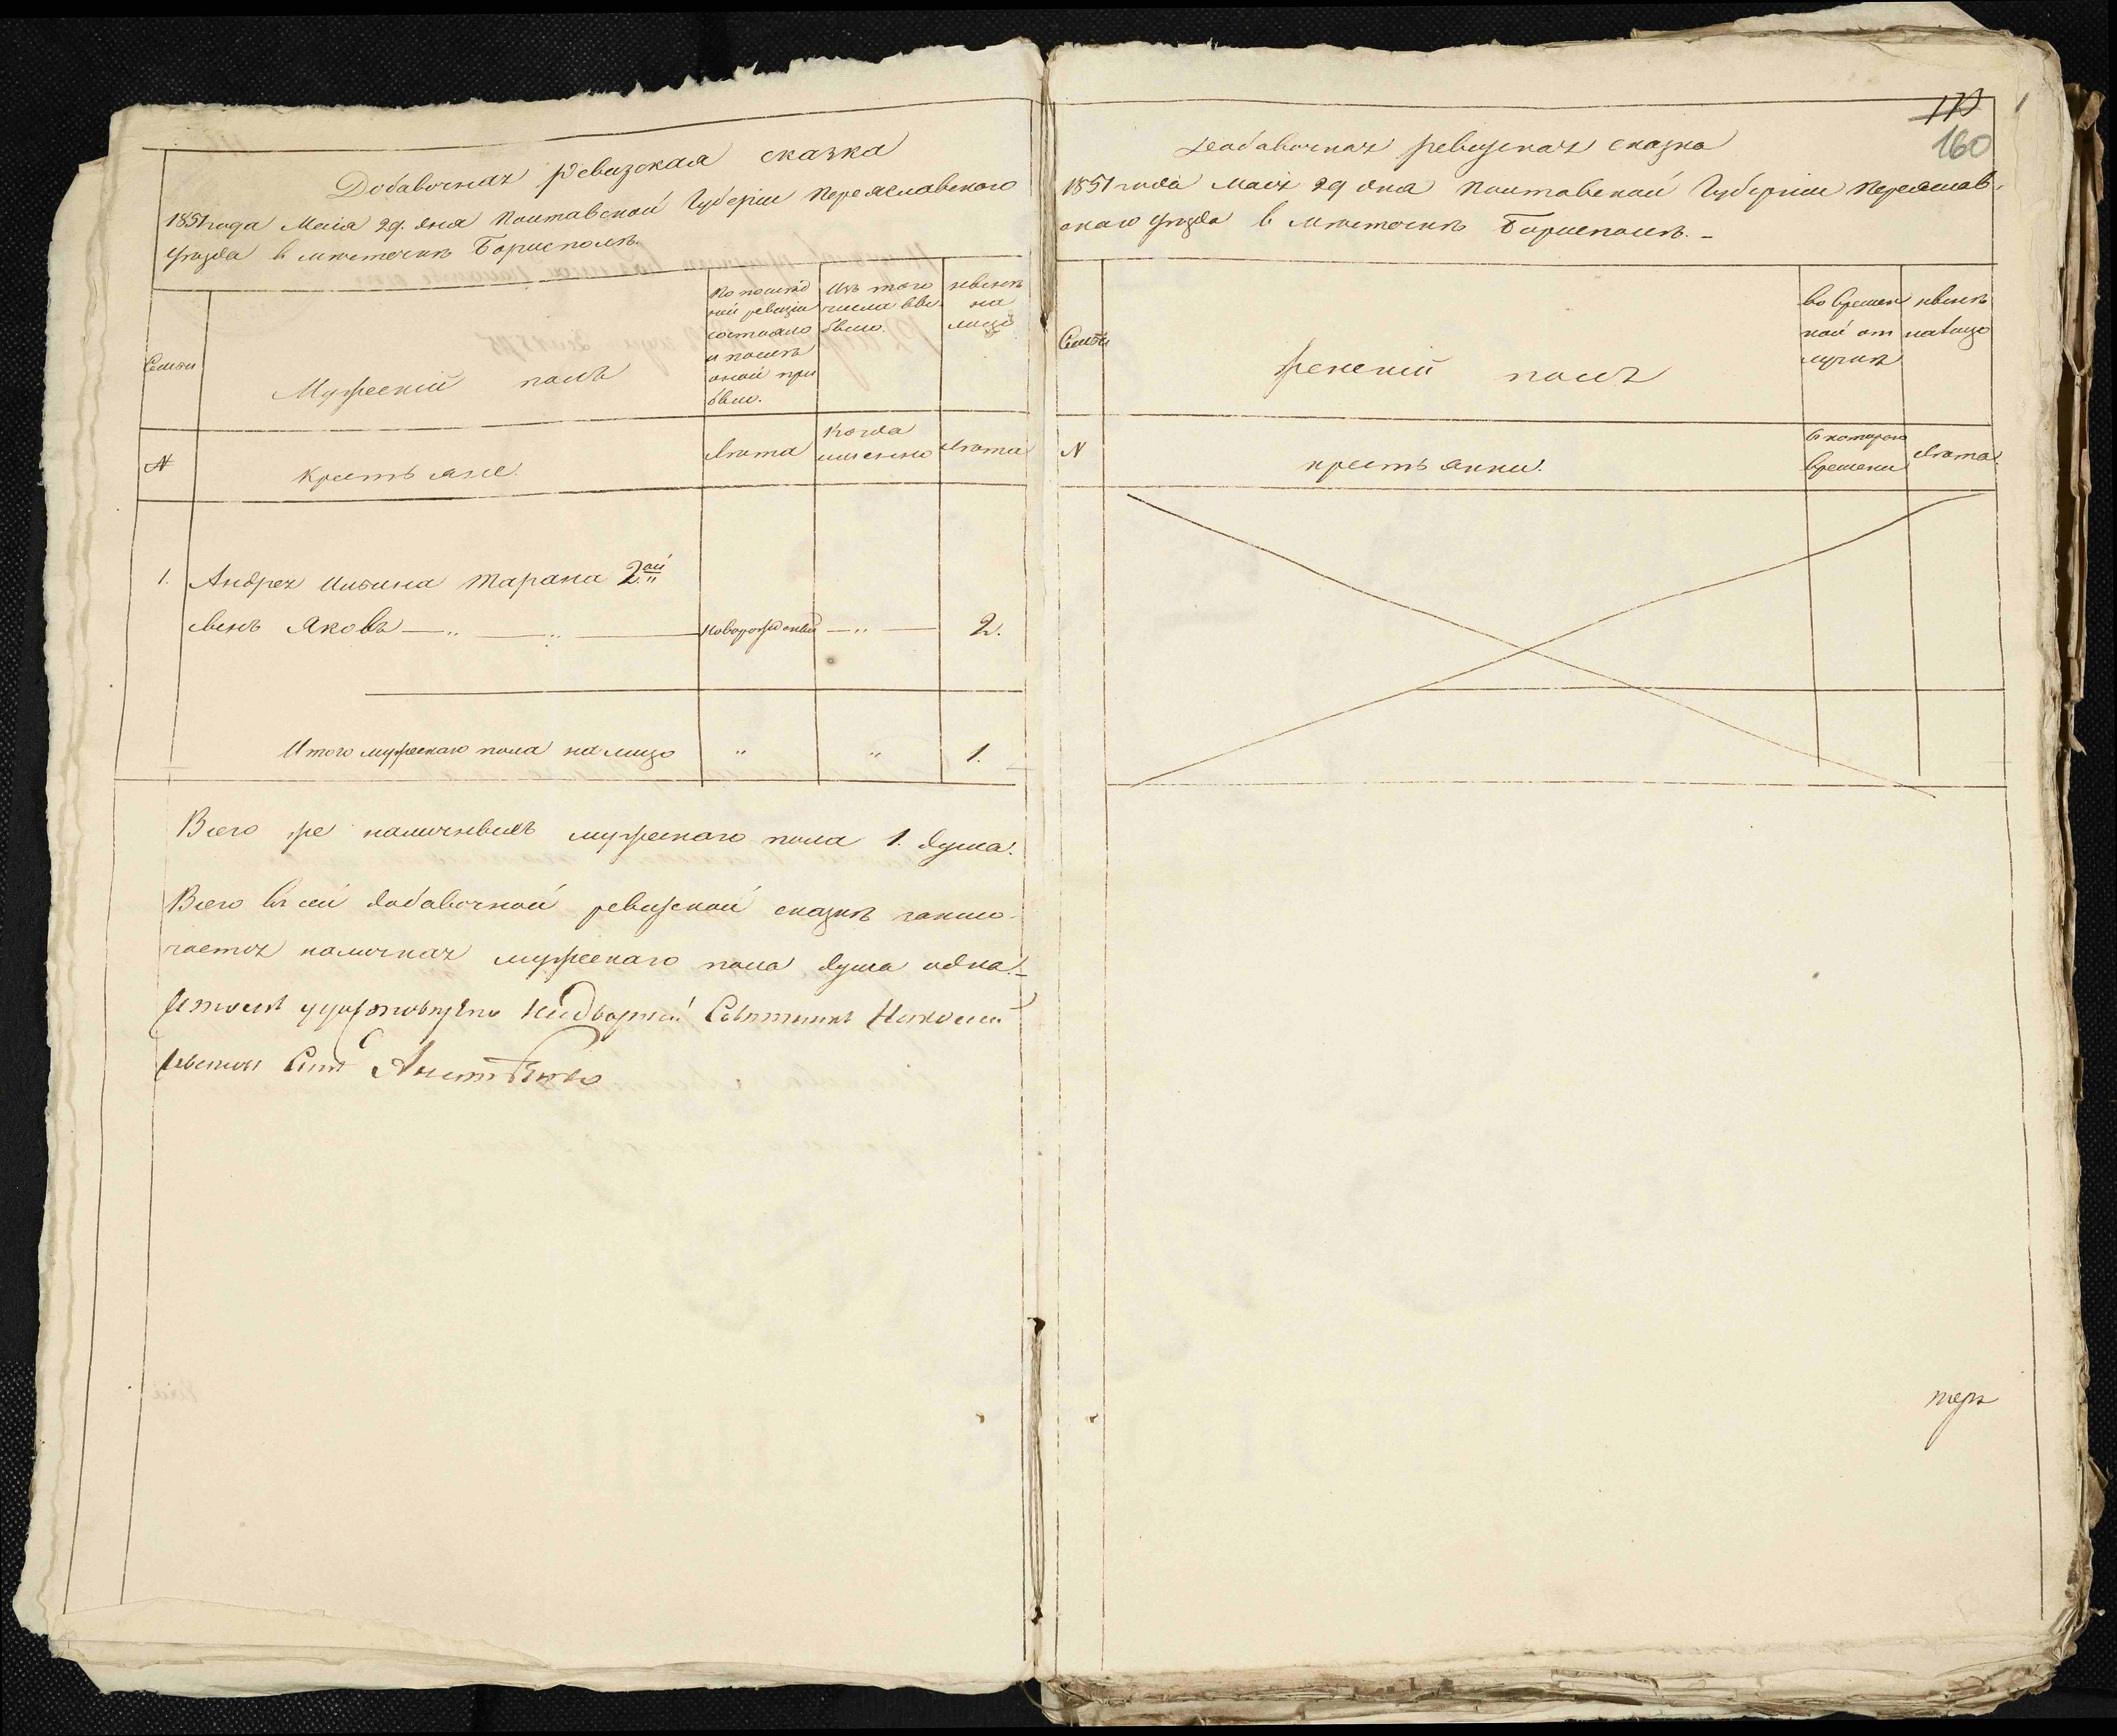 Добавочная ревизская сказка
1851 года Маія 29. дня Полтавской Губерніи Переяславскаго
уѣзда в мѣстечкѣ Борисполѣ.
Семьи
Мужескій полъ
По послѣд
ней ревизіи
состояло
и послѣ
оной при
было.
Изъ того
числа выб
было.
нынѣ
на
лицо
N
крестьяне.
лѣта
Когда
именно
лѣта
1. Андрея Ильина Тарана 2ой
сынъ Яковъ — " — " — новорожденный — " — 2.
Итого мужескаго пола на лицо " " 1.
Всего же наличныхъ мужескаго пола 1. душа.
Всего въ сей добавочной ревизской сказкѣ заклю-
чается наличная мужескаго пола душа одна.
Надворный Совѣтникъ Николай
Сынъ
170
160
1
Добавочная ревизская сказка
1851 года Маія 29 дня Полтавской Губерніи Переяслав-
скаго уѣзда в мѣстечкѣ Борисполѣ. –
Семьи
Женскій полъ
Во времен
ной от
лучкѣ
нынѣ
на лицо
N
крестьянки.
съ котораго
времени
лѣта.